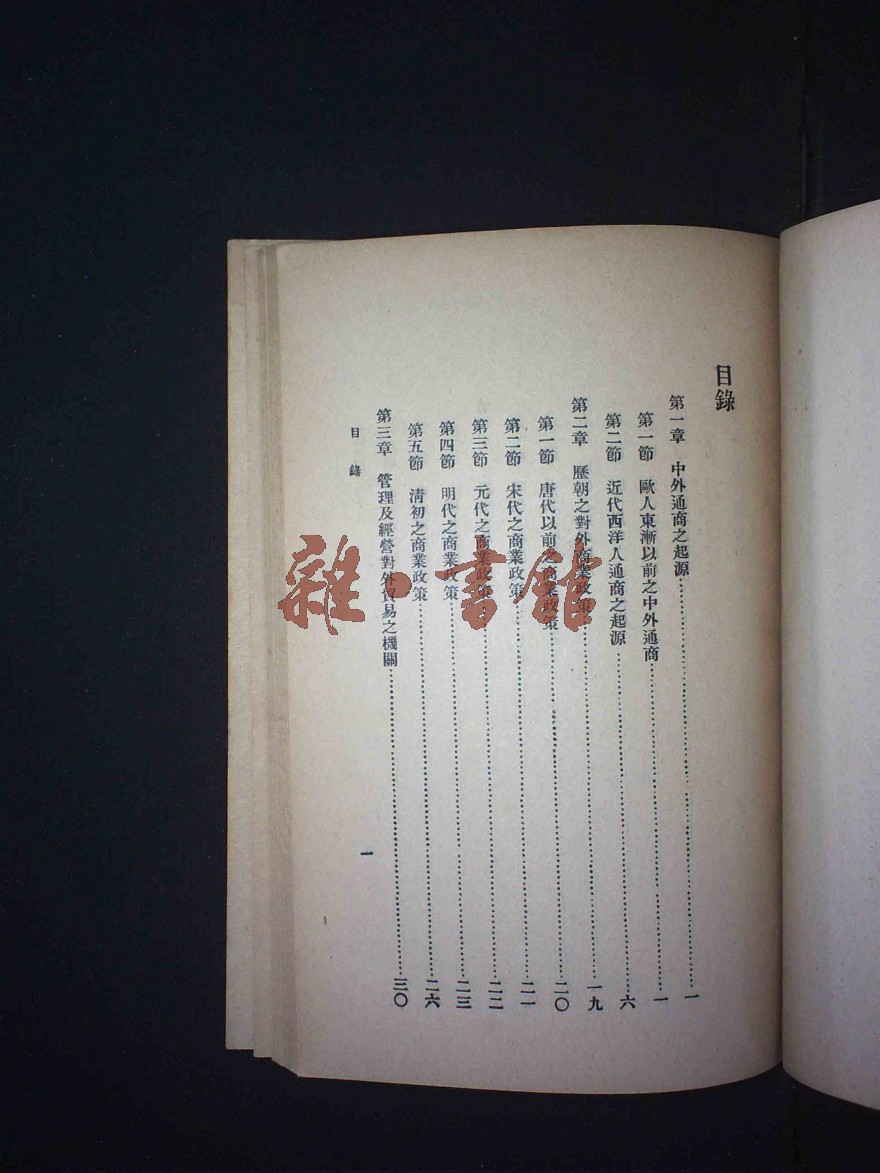 目錄
第一章 中外通商之起源……一
第一節 歐人東漸以前之中外通商……一
第二節 近代西洋人通商之起源……六
第二章 歷朝之對外商業政策……一九
第一節 唐代以前之商業政策……二〇
第二節 宋代之商業政策……二一
第三節 元代之商業政策……二二
第四節 明代之商業政策……二三
第五節 清初之商業政策……二六
第三章 管理及經營對外貿易之機關……三〇
目錄
一
雜書館